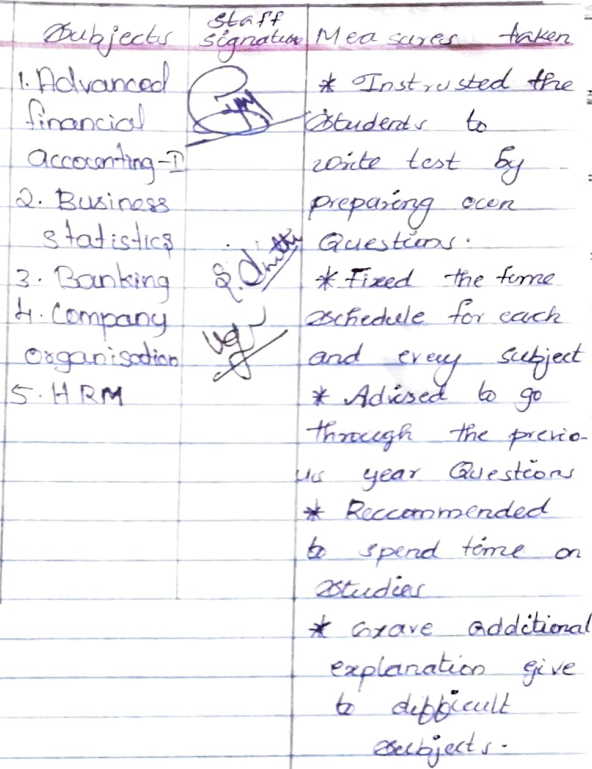 Subjects
Staff
Signature
Measures taken
1. Advanced
financial
accounting-II
2. Business
statistics
3. Banking
4. Company
organisation
5. HRM
* Instructed the
Students to
write test by
preparing own
Questions.
* Fixed the time
schedule for each
and every subject
* Advised to go
through the previo-
us year Questions
* Reccommended
to spend time on
Studies
* Grave additional
explanation give
to difficult
subjects.